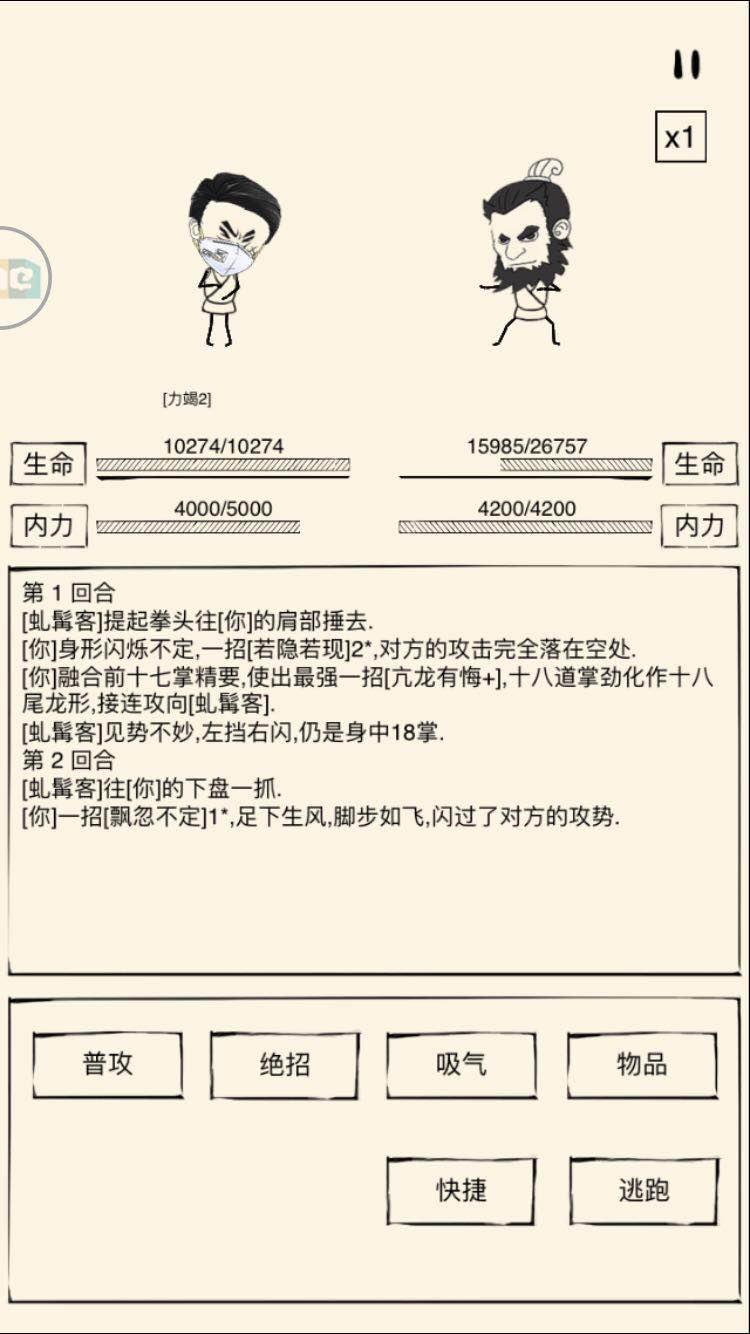 x1
[力竭2]
生命
10274/10274
15985/26757
生命
内力
4000/5000
4200/4200
内力
第 1 回合
[虬髯客]提起拳头往[你]的肩部捶去.
[你]身形闪烁不定,一招[若隐若现]2*,对方的攻击完全落在空处.
[你]融合前十七掌精要,使出最强一招[亢龙有悔+],十八道掌劲化作十八
尾龙形,接连攻向[虬髯客].
[虬髯客]见势不妙,左挡右闪,仍是身中18掌.
第 2 回合
[虬髯客]往[你]的下盘一抓.
[你]一招[飘忽不定]1*,足下生风,脚步如飞,闪过了对方的攻势.
普攻
绝招
吸气
物品
快捷
逃跑